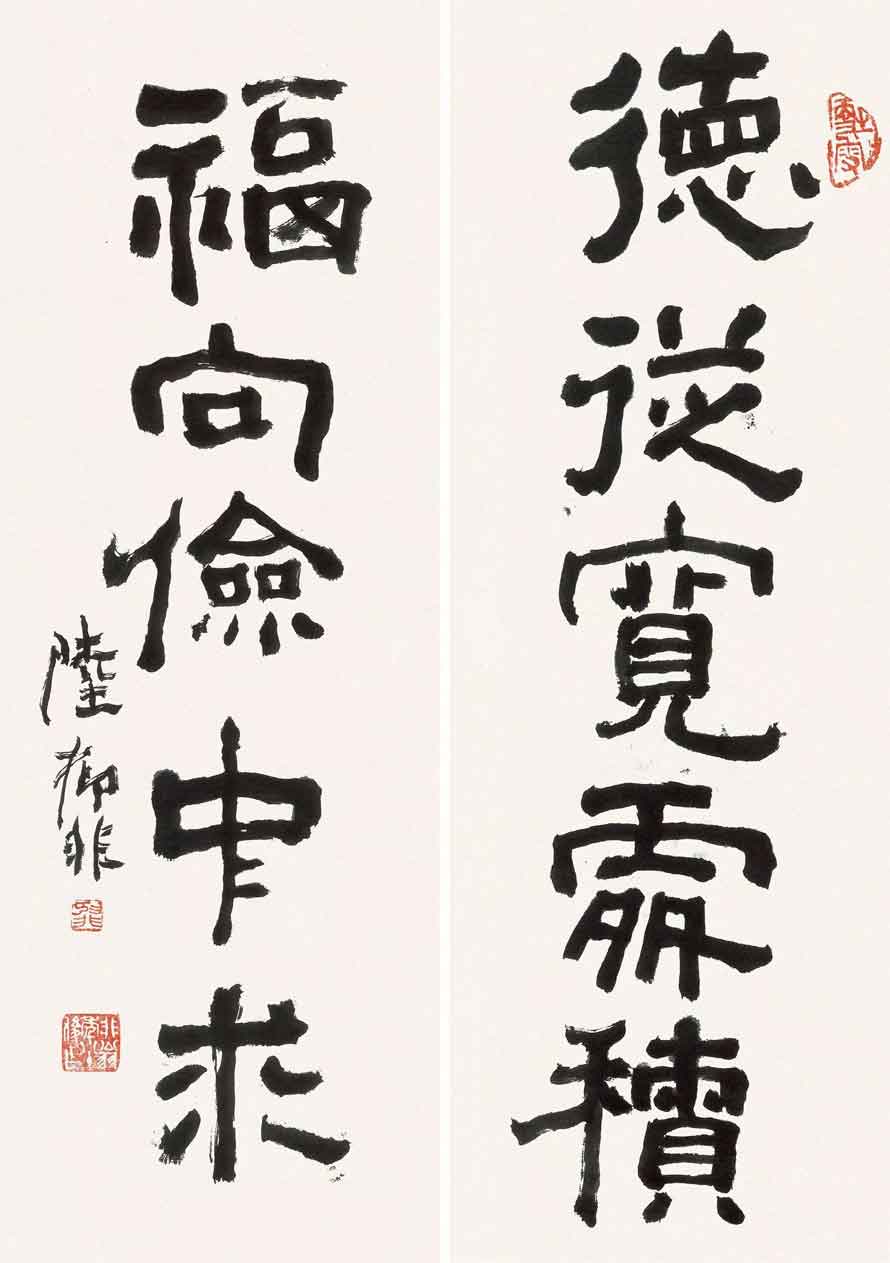 德從寬處積
福向儉中求
陸抑非